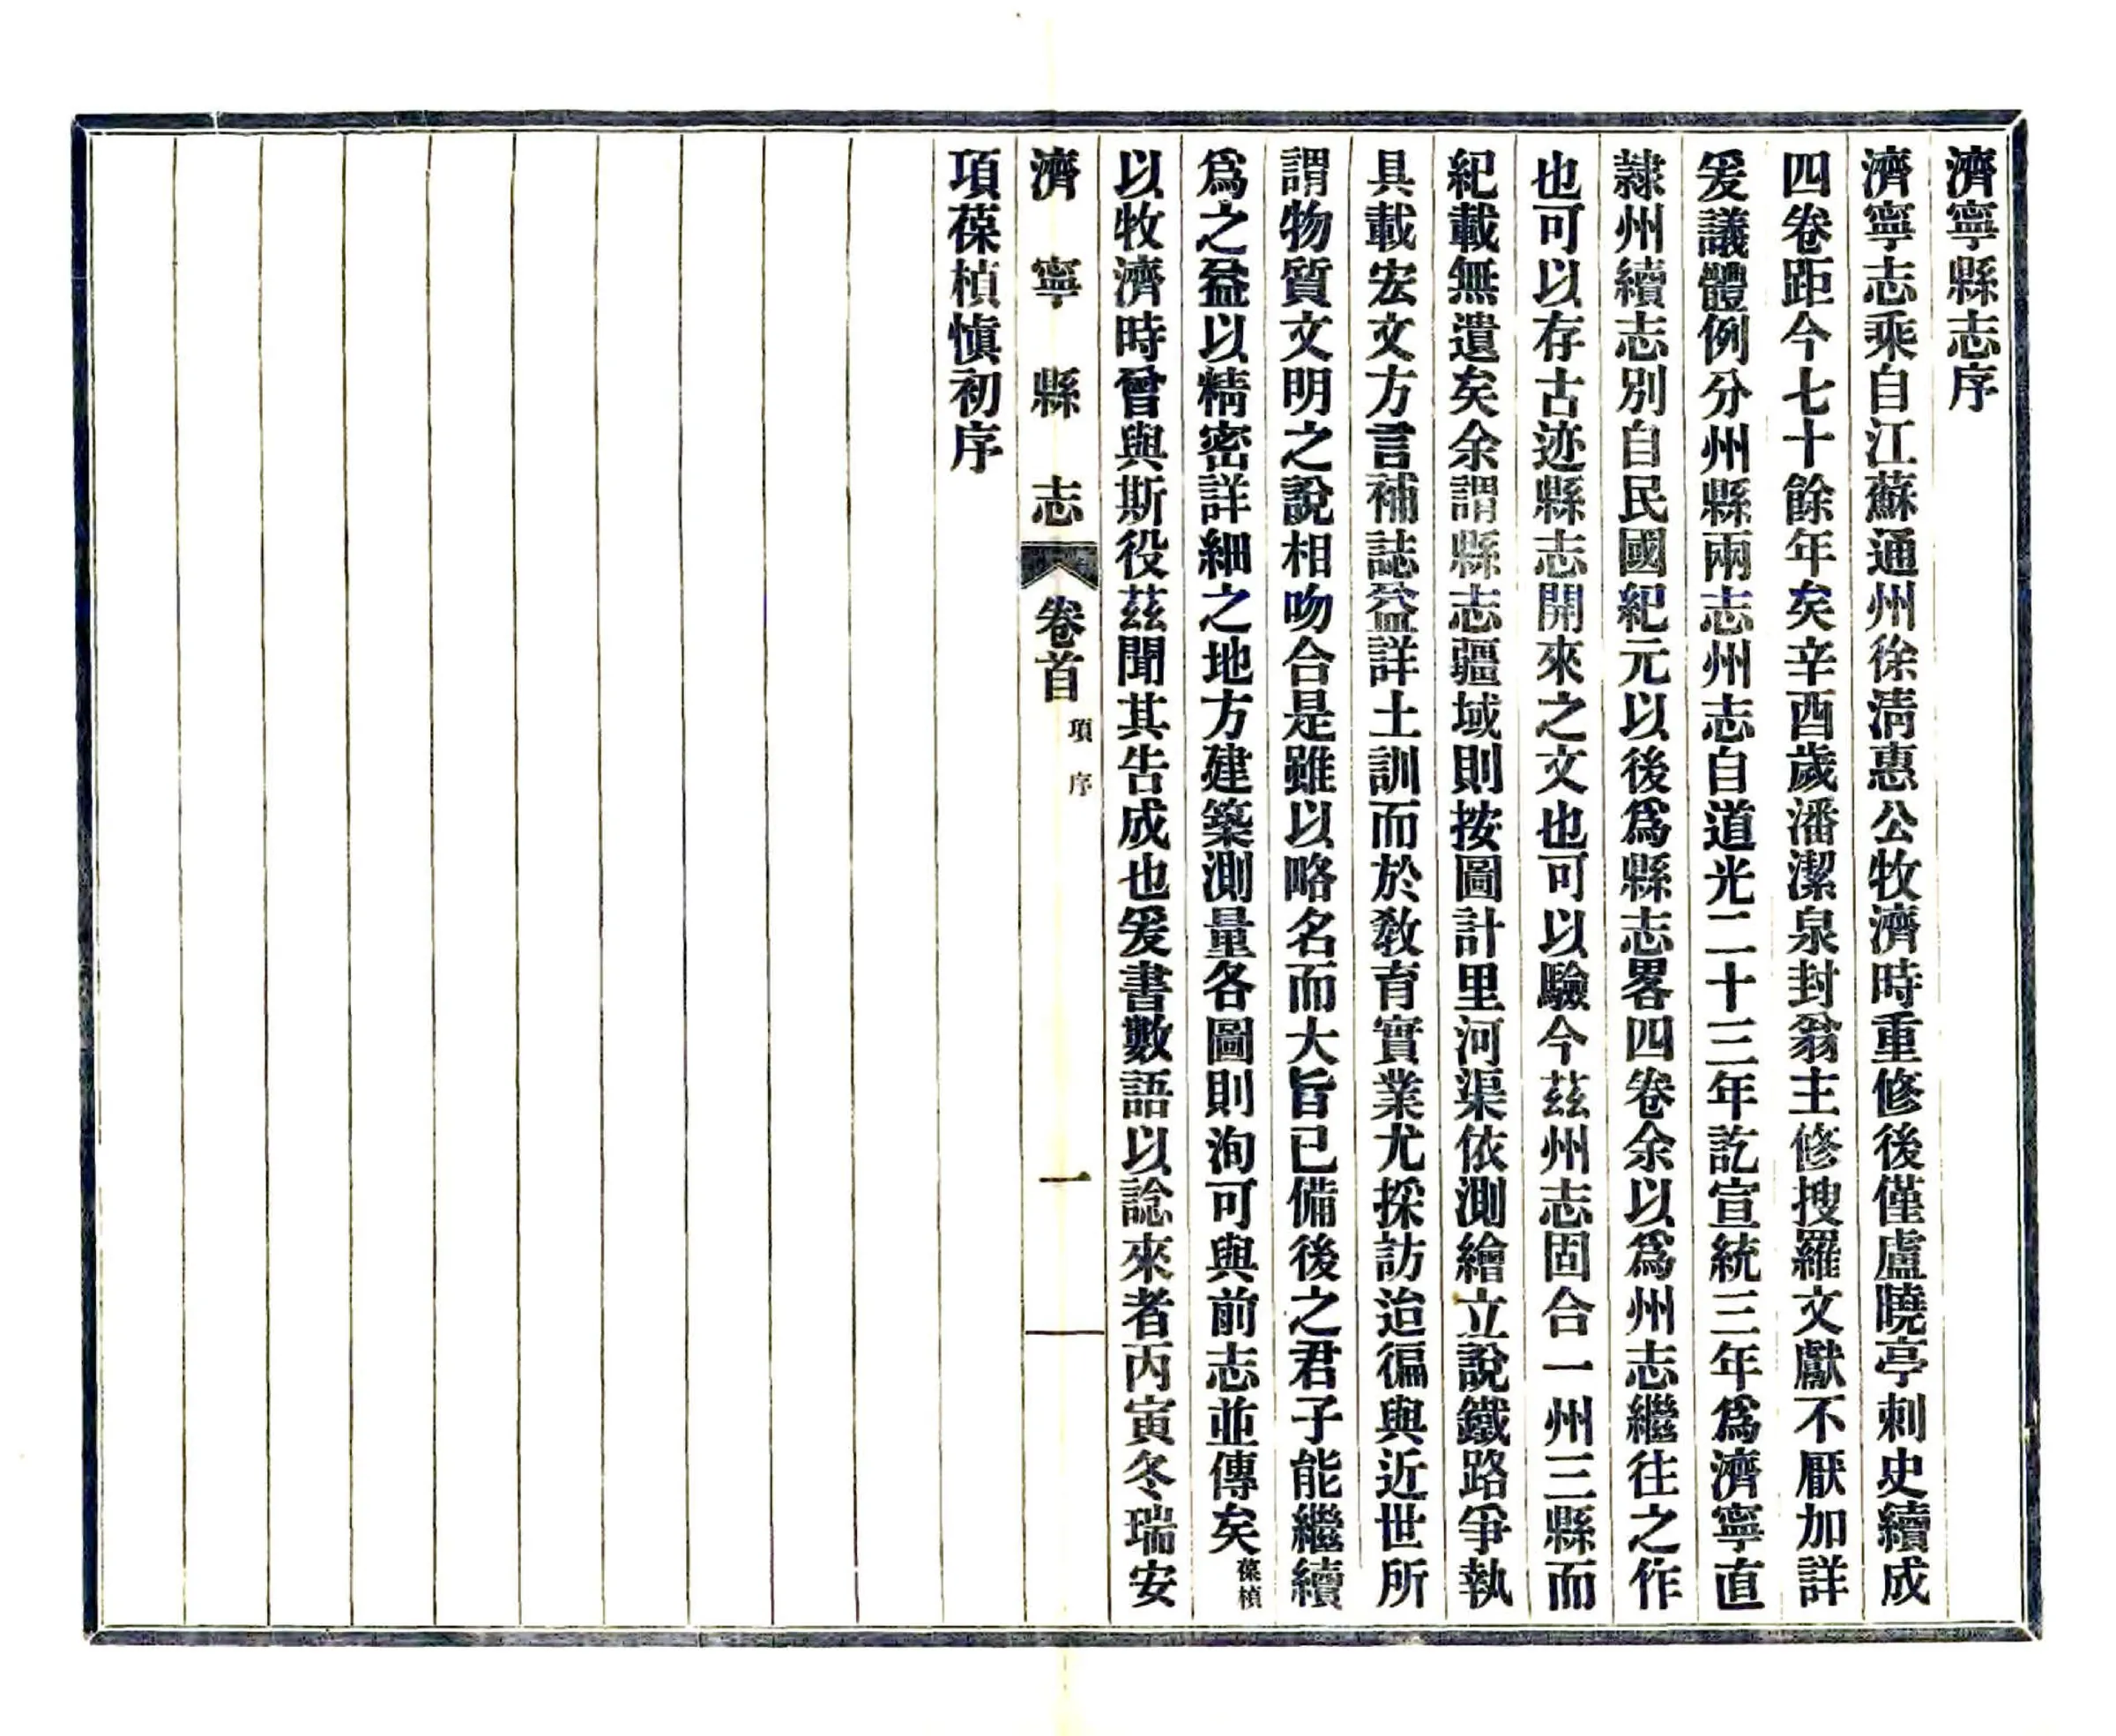 濟寧縣志序
濟寧志乘自江蘇通州徐淸惠公牧濟時重修後僅盧曉亭刺史續成
四卷距今七十餘年矣辛酉歲潘潔泉封翁主修搜羅文獻不厭加詳
爰議體例分州縣兩志州志自道光二十三年訖宣統三年爲濟寧直
隸州續志別自民國紀元以後爲縣志畧四卷余以爲州志繼往之作
也可以存古迹縣志開來之文也可以驗今茲州志固合一州三縣而
紀載無遺矣余謂縣志疆域則按圖計里河渠依測繪立說鐵路爭執
具載宏文方言補誌益詳土訓而於敎育實業尤採訪迨徧與近世所
謂物質文明之說相吻合是雖以略名而大旨已備後之君子能繼續
爲之益以精密詳細之地方建築測量各圖則洵可與前志並傳矣葆楨
以牧濟時曾與斯役茲聞其告成也爰書數語以諗來者丙寅冬瑞安
濟寧縣志 卷首 項序 一
項葆楨愼初序